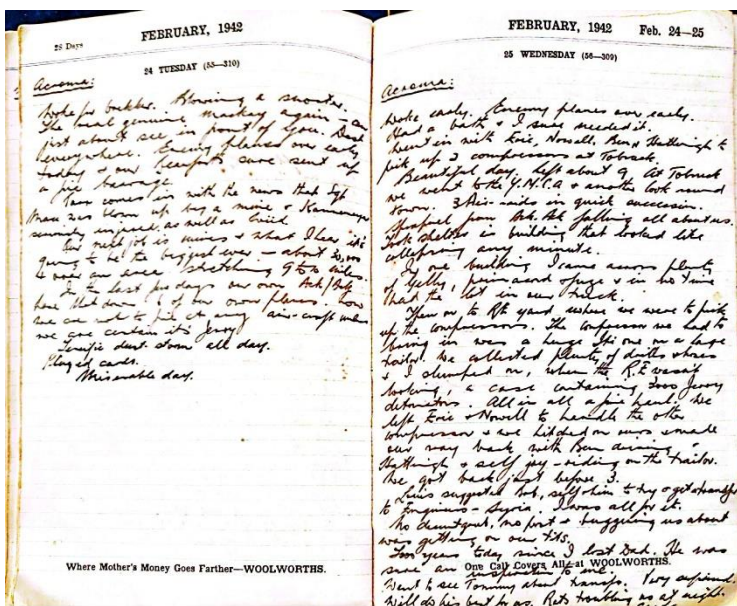 28 Days
FEBRUARY, 1942
24 TUESDAY (55—310)
Acroma:
Woke for brekker. Blowing a snorter.
The real genuine mackay again — can
just about see in front of you. Dust
everywhere. Enemy planes over early
today & our beauforts sure sent up
a fine barrage.
comes in with the news that Sgt
blown up by a mine &
seriously injured, as well as
Our next job is mines & what I hear it's
going to be the biggest ever — about
over an area stretching 9 to 10 miles.
In the last few days our own Ack/Ack
have shot down 6 of our own planes. Now
we are not to fire at any air-craft unless
we are certain it's Jerry
Terrific dust storm all day.
Played cards.
Miserable day.
Where Mother's Money Goes Farther—WOOLWORTHS.
FEBRUARY, 1942 Feb. 24—25
25 WEDNESDAY (56—309)
Acroma:
Woke early. Enemy planes over early.
Had a bath & I sure needed it.
Went in with Eric, Nowell, Ben & Hattingh to
pick up 2 compressors at Tobruk.
Beautiful day. Left about 9. At Tobruk
we went to the Y.M.C.A & another look round
town. 3 Air-raids in quick succession.
Shrapnel from Ack Ack falling all about us.
Took shelter in building that looked like
collapsing any minute.
In one building I came across plenty
of Gelly, primers and fuze & in no time
had the lot in our truck.
Then on to RE yard where we were to pick
up the compressors. The compressor we had to
bring in was a huge Iti one on a large
trailor. We collected plenty of drills & hoses
& I clumped on, when the R.E wasn't
looking, a case containing 3000 Jerry
detonators. All in all a fine haul. We
left Eric & Nowell to handle the other
compressor & we hitched on ours & made
our way back with Ben driving &
Hattingh & self joy-riding on the trailor.
We got back just before 3.
Louis suggested Bob, self & him to try & get a transfer
to Engineers — Syria. I was all for it.
No post & buggering us about
was getting on our tits.
Four years today since I lost Dad. He was
sure an inspiration to me.
One Call Covers All—at WOOLWORTHS.
Went to see Tommy about transfer. Very surprised.
Will do his best for us. Rats troubling us at night.